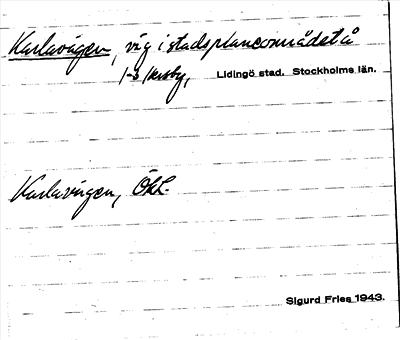 Karlavägen, väg i stadsplaneområdet å
Lidingö stad. Stockholms län.
Karlavägen, ÖhL
Sigurd Fries 1943.